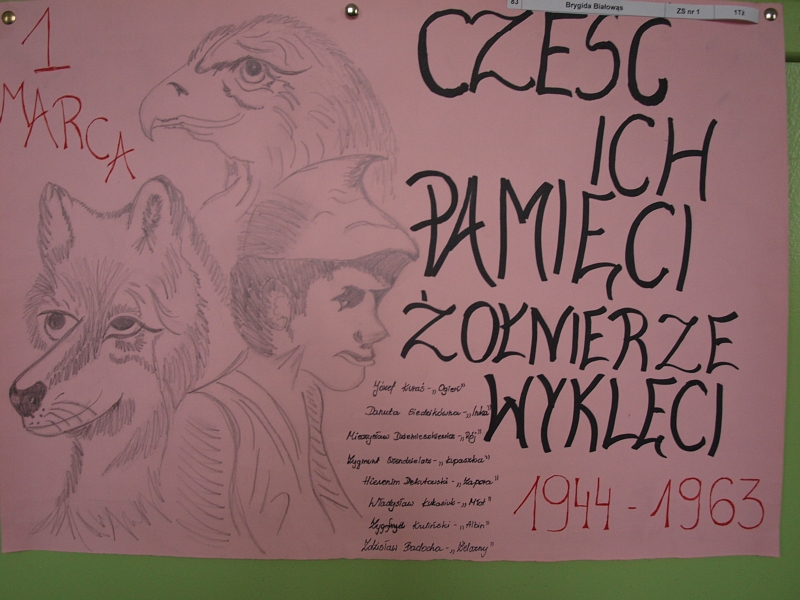 83
Brygida Białowąs
ZS nr 1
1Tż
1
MARCA
CZEŚĆ
ICH
PAMIĘCI
ŻOŁNIERZE
WYKLĘCI
Józef Kuraś - „Ogień"
Danuta Siedzikówna - „Inka"
Mieczysław Dziemieszkiewicz - „Rój"
Zygmunt Szendzielarz - „Łupaszka"
Hieronim Dekutowski - „Zapora"
Władysław Łukasiuk - „Młot"
Zygfryd Kuliński - „Albin"
Zdzisław Badocha - „Żelazny"
1944 - 1963